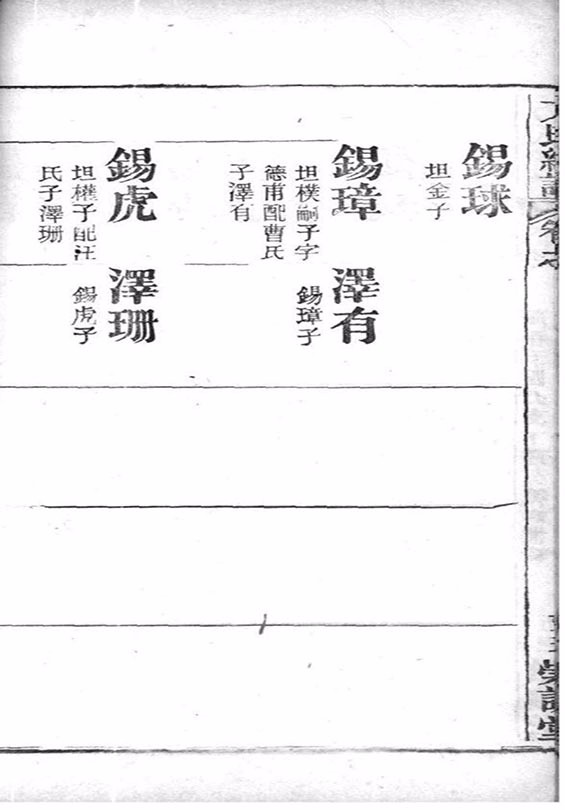 錫球
坦金子
錫璋
坦樸嗣子字
德甫配曹氏
子澤有
澤有
錫璋子
錫虎
坦權子配汪
氏子澤珊
澤珊
錫虎子